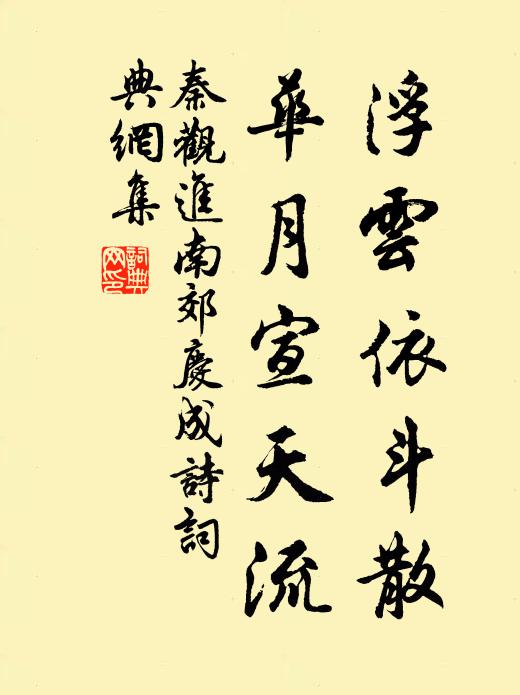 浮雲依斗散
華月宣天流
秦觀進南郊慶成詩詞
典網集
詞典
网印